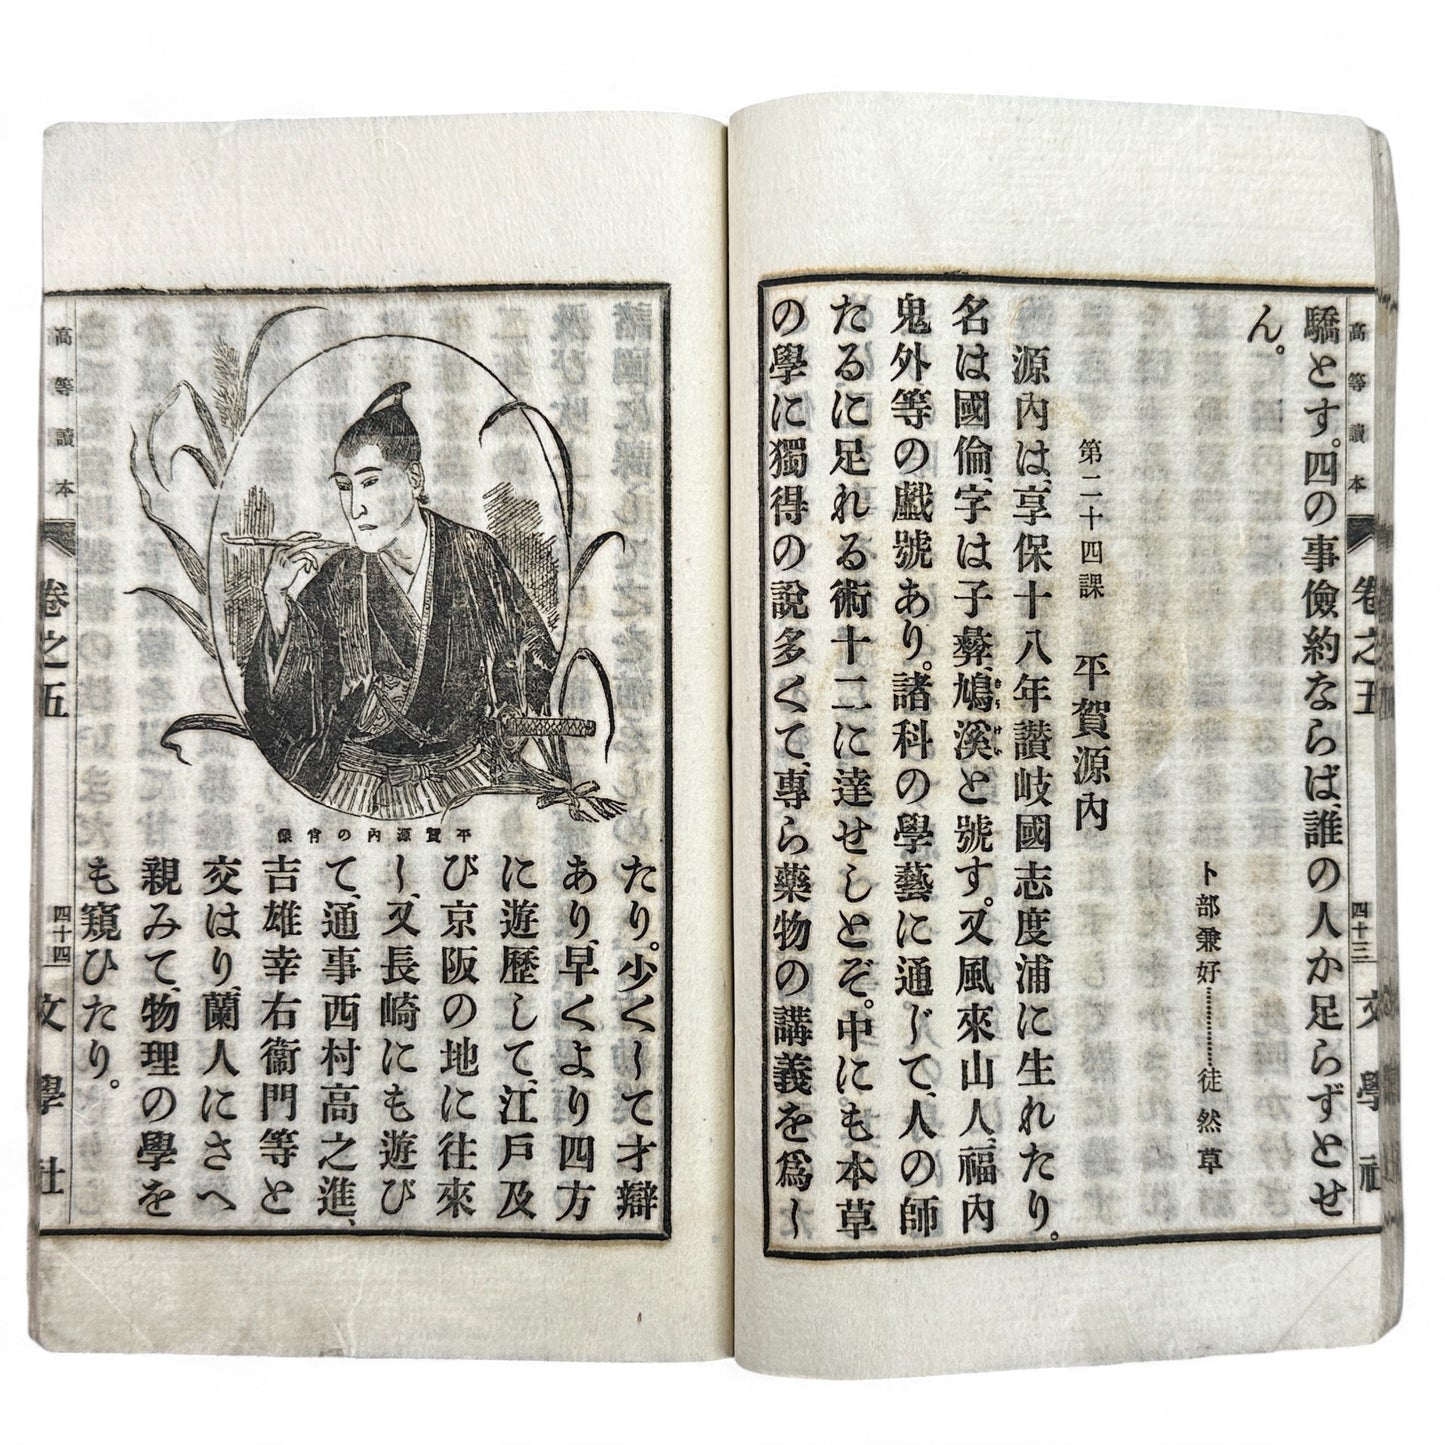 高等讀本
卷之五
四十三
文學社
驕とす。四の事儉約ならば、誰の人か足らずとせ
ん。
卜部兼好…………徒然草
第二十四課　平賀源內
源內は、享保十八年讃岐國志度浦に生れたり。
名は國倫、字は子彝、鳩溪と號す。又風來山人、福內
鬼外等の戲號あり。諸科の學藝に通じて、人の師
たるに足れる術十二に達せしとぞ。中にも本草
の學に獨得の說多くて、專ら藥物の講義を爲し
平賀源內の肖像
たり。少くして才辯
あり、早くより四方
に遊歷して、江戶及
び京阪の地に往來
し、又長崎にも遊び
て、通事西村高之進、
吉雄幸右衞門等と
交はり、蘭人にさへ
親みて、物理の學を
も窺ひたり。
高等讀本
卷之五
四十四
文學社